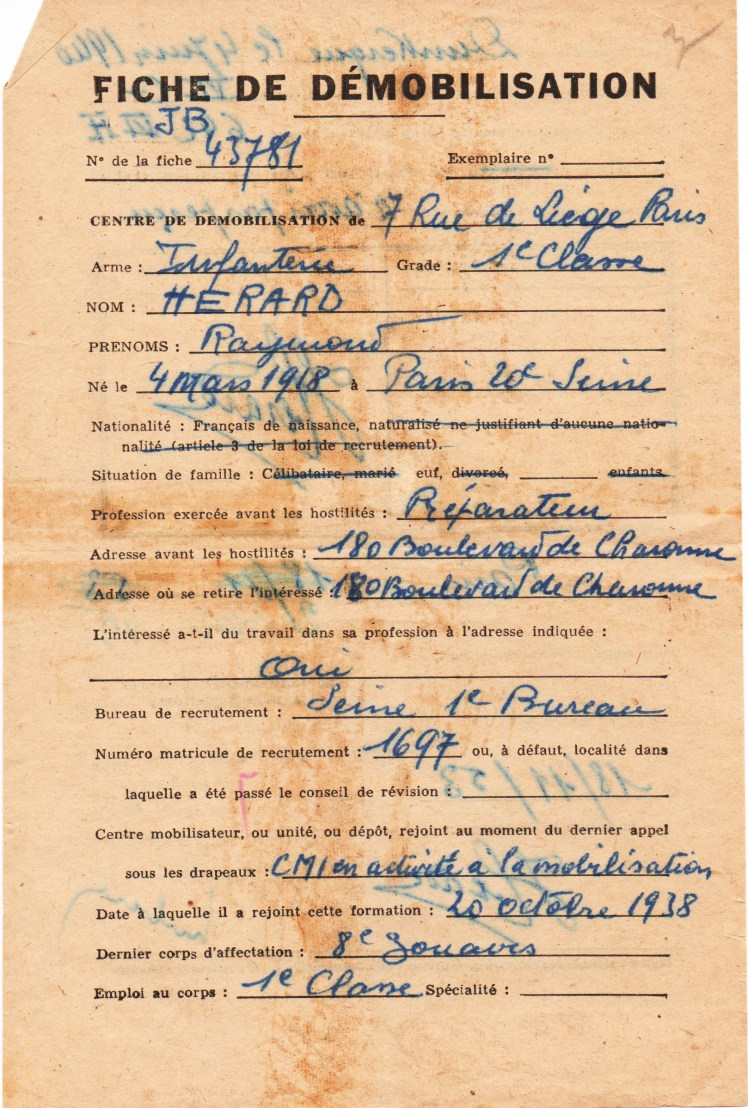 FICHE DE DÉMOBILISATION
JB
N° de la fiche 43781 Exemplaire n°
CENTRE DE DEMOBILISATION de 7 Rue de Liège Paris
Arme : Infanterie Grade : 1e Classe
NOM : HERARD
PRENOMS : Raymond
Né le 4 Mars 1918 à Paris 20e Seine
Nationalité : Français de naissance, naturalisé ne justifiant d'aucune natio-
nalité (article 3 de la loi de recrutement).
Situation de famille : Célibataire, marié euf, divorcé, enfants.
Profession exercée avant les hostilités : Préparateur
Adresse avant les hostilités : 180 Boulevard de Charonne
Adresse où se retire l'intéressé : 180 Boulevard de Charonne
L'intéressé a-t-il du travail dans sa profession à l'adresse indiquée :
Oui
Bureau de recrutement : Seine 1e Bureau
Numéro matricule de recrutement : 1697 ou, à défaut, localité dans
laquelle a été passé le conseil de révision :
Centre mobilisateur, ou unité, ou dépôt, rejoint au moment du dernier appel
sous les drapeaux : CMI en activité à la mobilisation
Date à laquelle il a rejoint cette formation : 20 octobre 1938
Dernier corps d'affectation : 8e Zouaves
Emploi au corps : 1e Classe Spécialité :